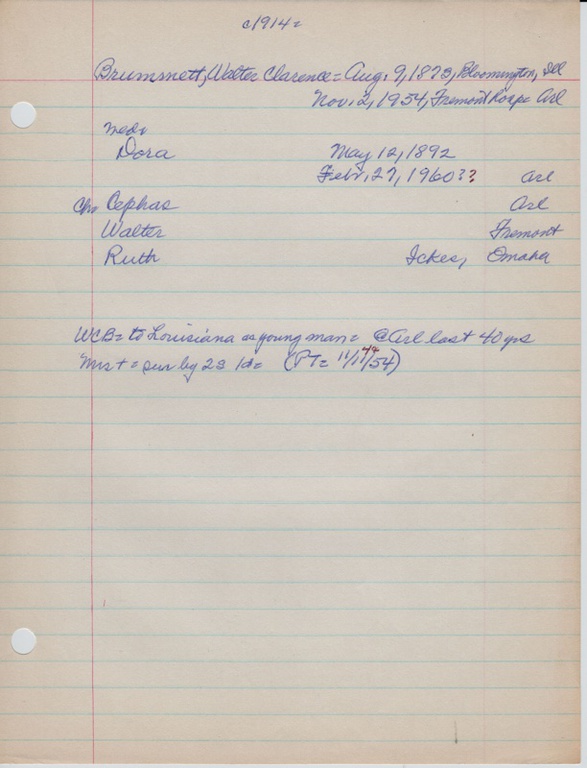 c1914=
Brumsnett, Walter Clarence= Aug. 9, 1873, Bloomington, Ill
Nov. 2, 1954, Fremont Hosp= Arl
Dora May 12, 1892
Feb. 27, 1960?? Arl
Ch= Cephas Arl
Walter Fremont
Ruth Ickes, Omaha
WCB= to Louisiana as young man= @ Arl last 40 yrs
Mrs + = sur by 23 (PT= 11/11/54)